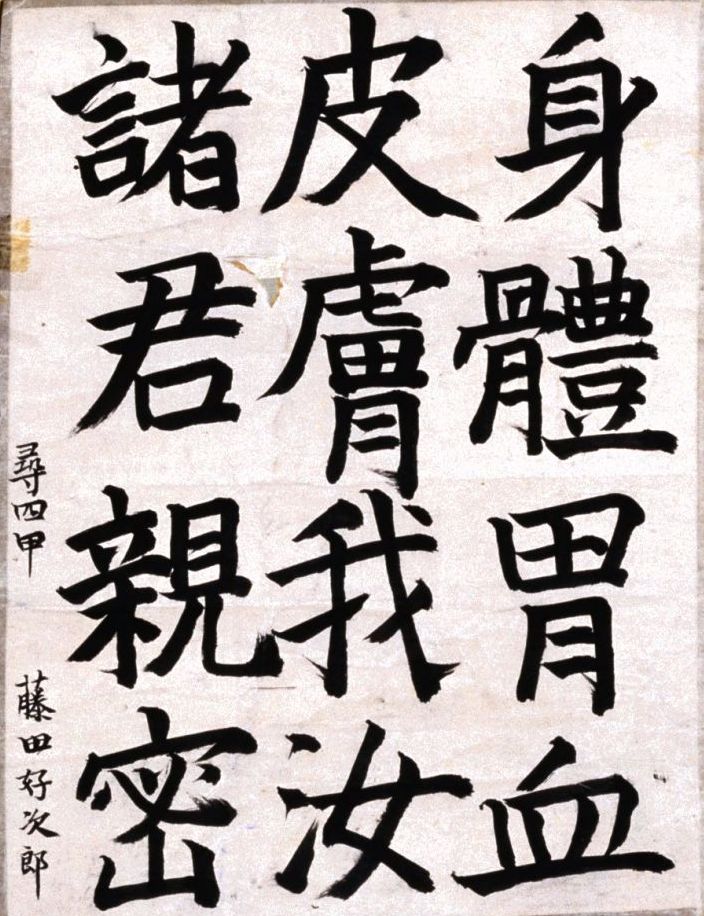 身體胃血
皮膚我汝
諸君親密
尋四甲 藤田好次郎